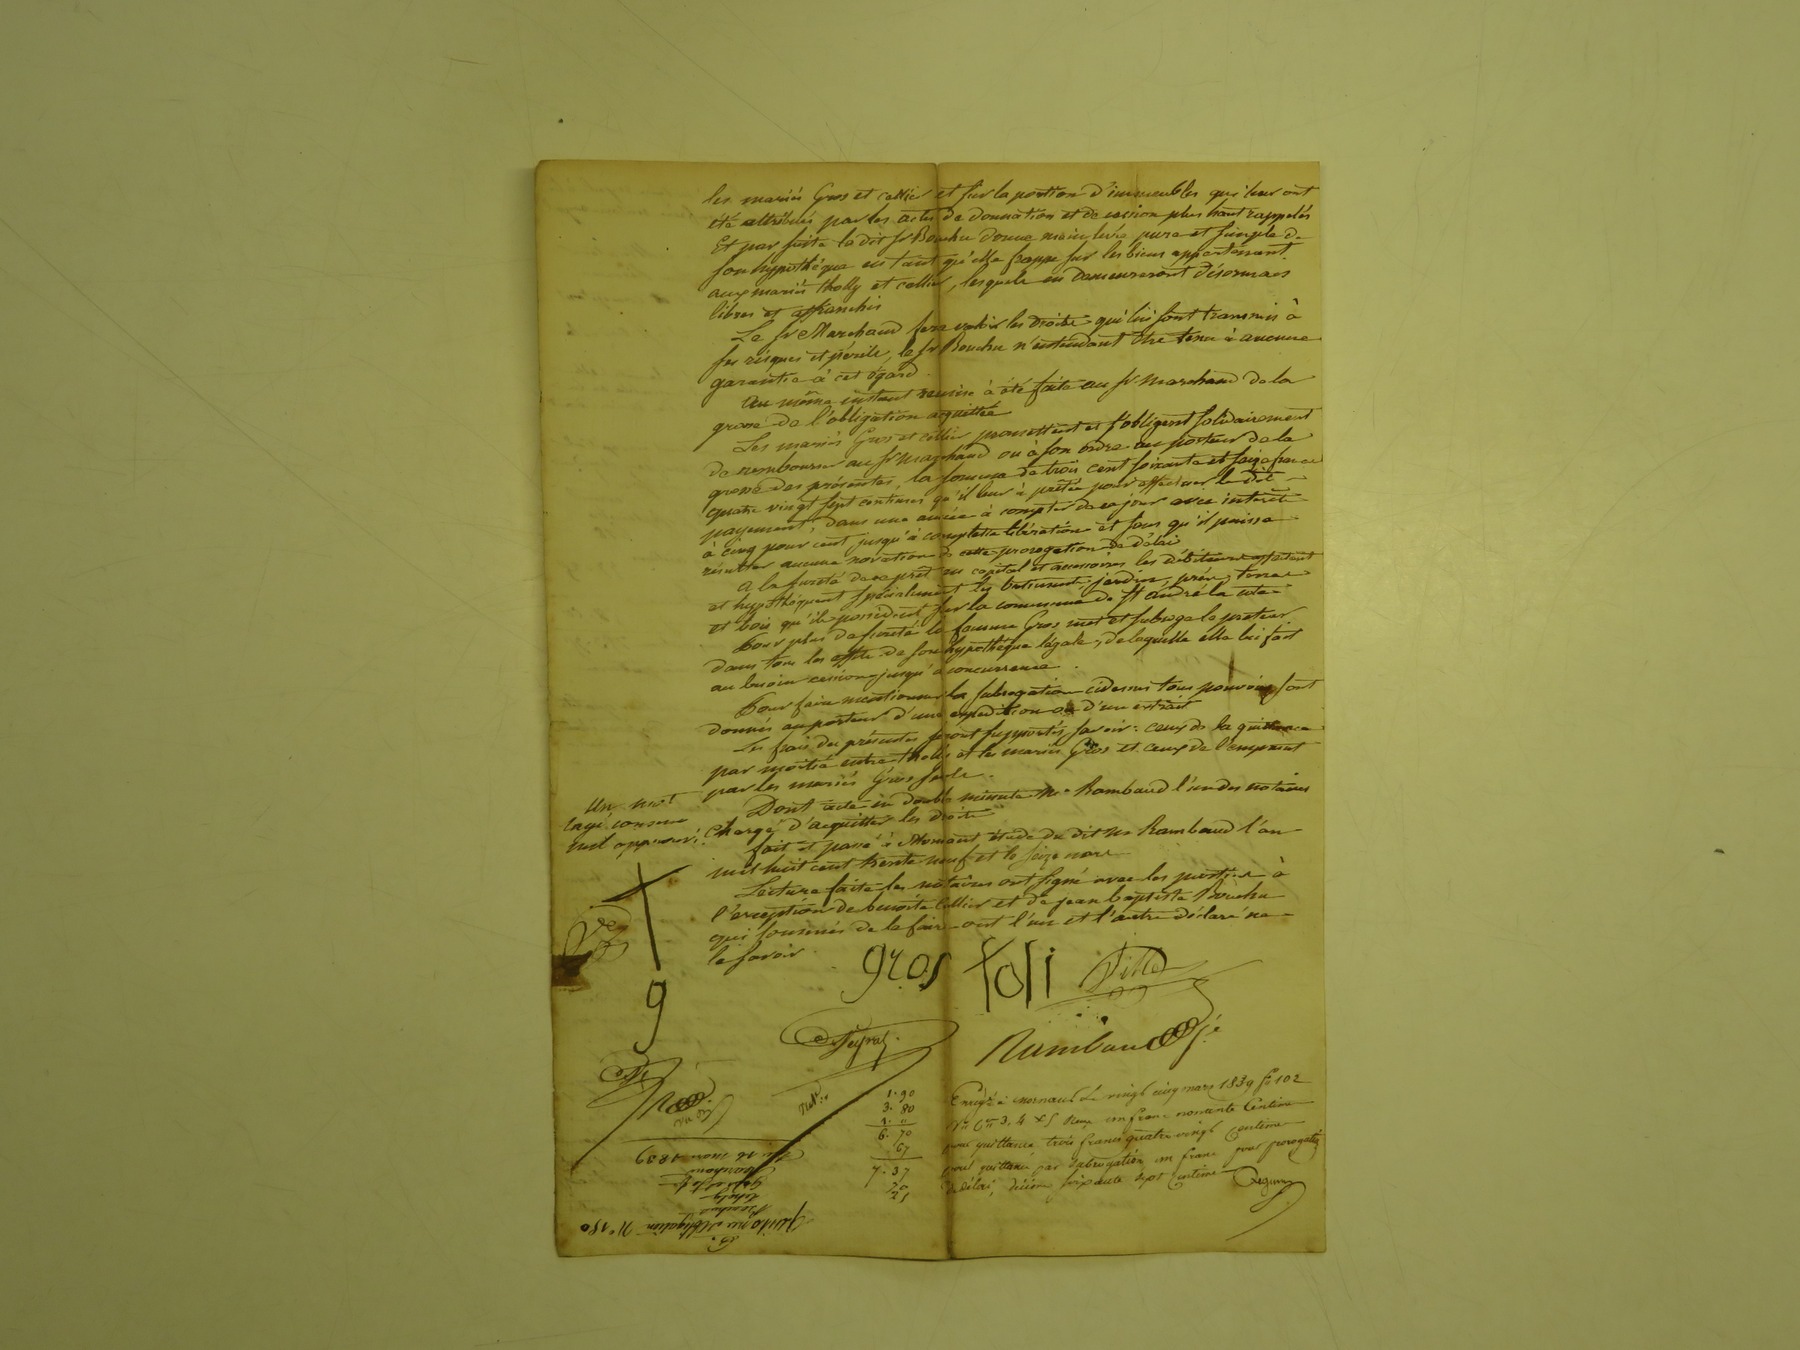 les mariés Gros et cellier et sur la portion d'immeubles qui leur ont
été attribués par les actes de donnation et de cession plus haut rappelés
Et par suite le dit sr Bouchu donne main levée pure et simple de
son hypothèque en tant qu'elle frappe sur les biens appartenant
aux mariés tholly et cellier, lesquels en demeureront désormais
libres et affranchis
Le sr Marchand fera valoir les droits qui lui sont transmis à
ses risques et périls, le sr Bouchu n'entendant être tenu à aucune
garantie à cet égard
Au même instant remise à été faite au sr Marchand de la
grosse de l'obligation acquittée
Les mariés Gros et cellier promettent et s'obligent solidairement
de rembourser au sr Marchand ou à son ordre au porteur de la
grosse des présentes, la somme de trois cent soixante et seize francs
quatre vingt sept centimes qu'il leur à prêtée pour effectuer le dit
payement, dans une année à compter de ce jour avec intérêt
à cinq pour cent jusqu'à complette libération et sans qu'il puisse
résulter aucune novation de cette prorogation de délai
A la sureté de ce prêt en capital et accessoires les débiteurs affectent
et hypothéquent spécialement les batiments, jardin, prés, terres
et bois qu'ils possèdent sur la commune de St andré la côte
Pour plus de sureté la femme Gros met et subroge le prêteur
dans tous les effets de son hypothèque légale, de laquelle elle lui fait
au besoin cession jusqu'à concurrence.
Pour faire mentionner la subrogation cidessus tous pouvoirs sont
donnés au porteur d'une expedition ou d'un extrait
Les frais des présentes seront supportés, savoir: ceux de la quittance
par moitié entre tholly et les mariés Gros et ceux de l'emprunt
par les mariés Gros seuls.
Dont acte en double minute Me Rambaud l'un des notaires
Chargé d'acquitter les droits
fait et passé à Mornant étude du dit Me Rambaud l'an
mil huit cent trente neuf et le seize mars
Lecture faite les notaires ont signé avec les parties à
l'exception de benoite Cellier et de jean baptiste Bouchu
qui sommés de le faire ont l'un et l'autre déclaré ne
le savoir.
Un mot
rayé comme
nul approuvé
gros toli
g
Rambaud
Enrgé à Mornant Le vingt cinq mars 1839 fo 102
3, 4 & 5 Reçu un franc nonante Centimes
pour quittance, trois francs quatre vingt Centimes
pour quittance par subrogation, un franc pour prorogation
de délai, décime soixante sept Centimes
1. 90
3. 80
1. "
6. 70
67
7. 37
Du 16 Mars 1839
Marchand
Bouchu
Quittance et obligation No 150